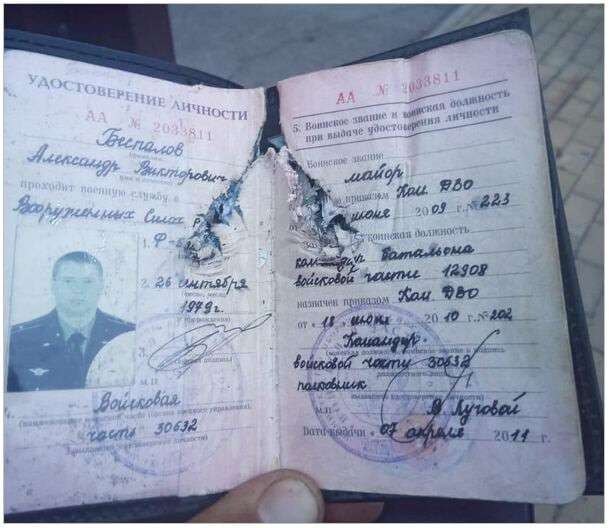 УДОСТОВЕРЕНИЕ ЛИЧНОСТИ
АА № 2033811
Беспалов
Александр Викторович
проходит военную службу в
Вооруженных Силах
1.
2. 26 сентября
1979г.
3.
М.П.
Войсковая
часть 30632
АА № 2033811
5. Воинское звание и воинская должность
при выдаче удостоверения личности
Воинское звание
майор
приказом Ком. ДВО
июня 2009 г. № 223
воинская должность
командир батальона
войсковой части 12908
назначен приказом Ком. ДВО
от "18" июня 2010 г. № 202
Командир
войсковой части 30632
полковник
М.П.
В Луговой
Дата выдачи "07" апреля 2011 г.